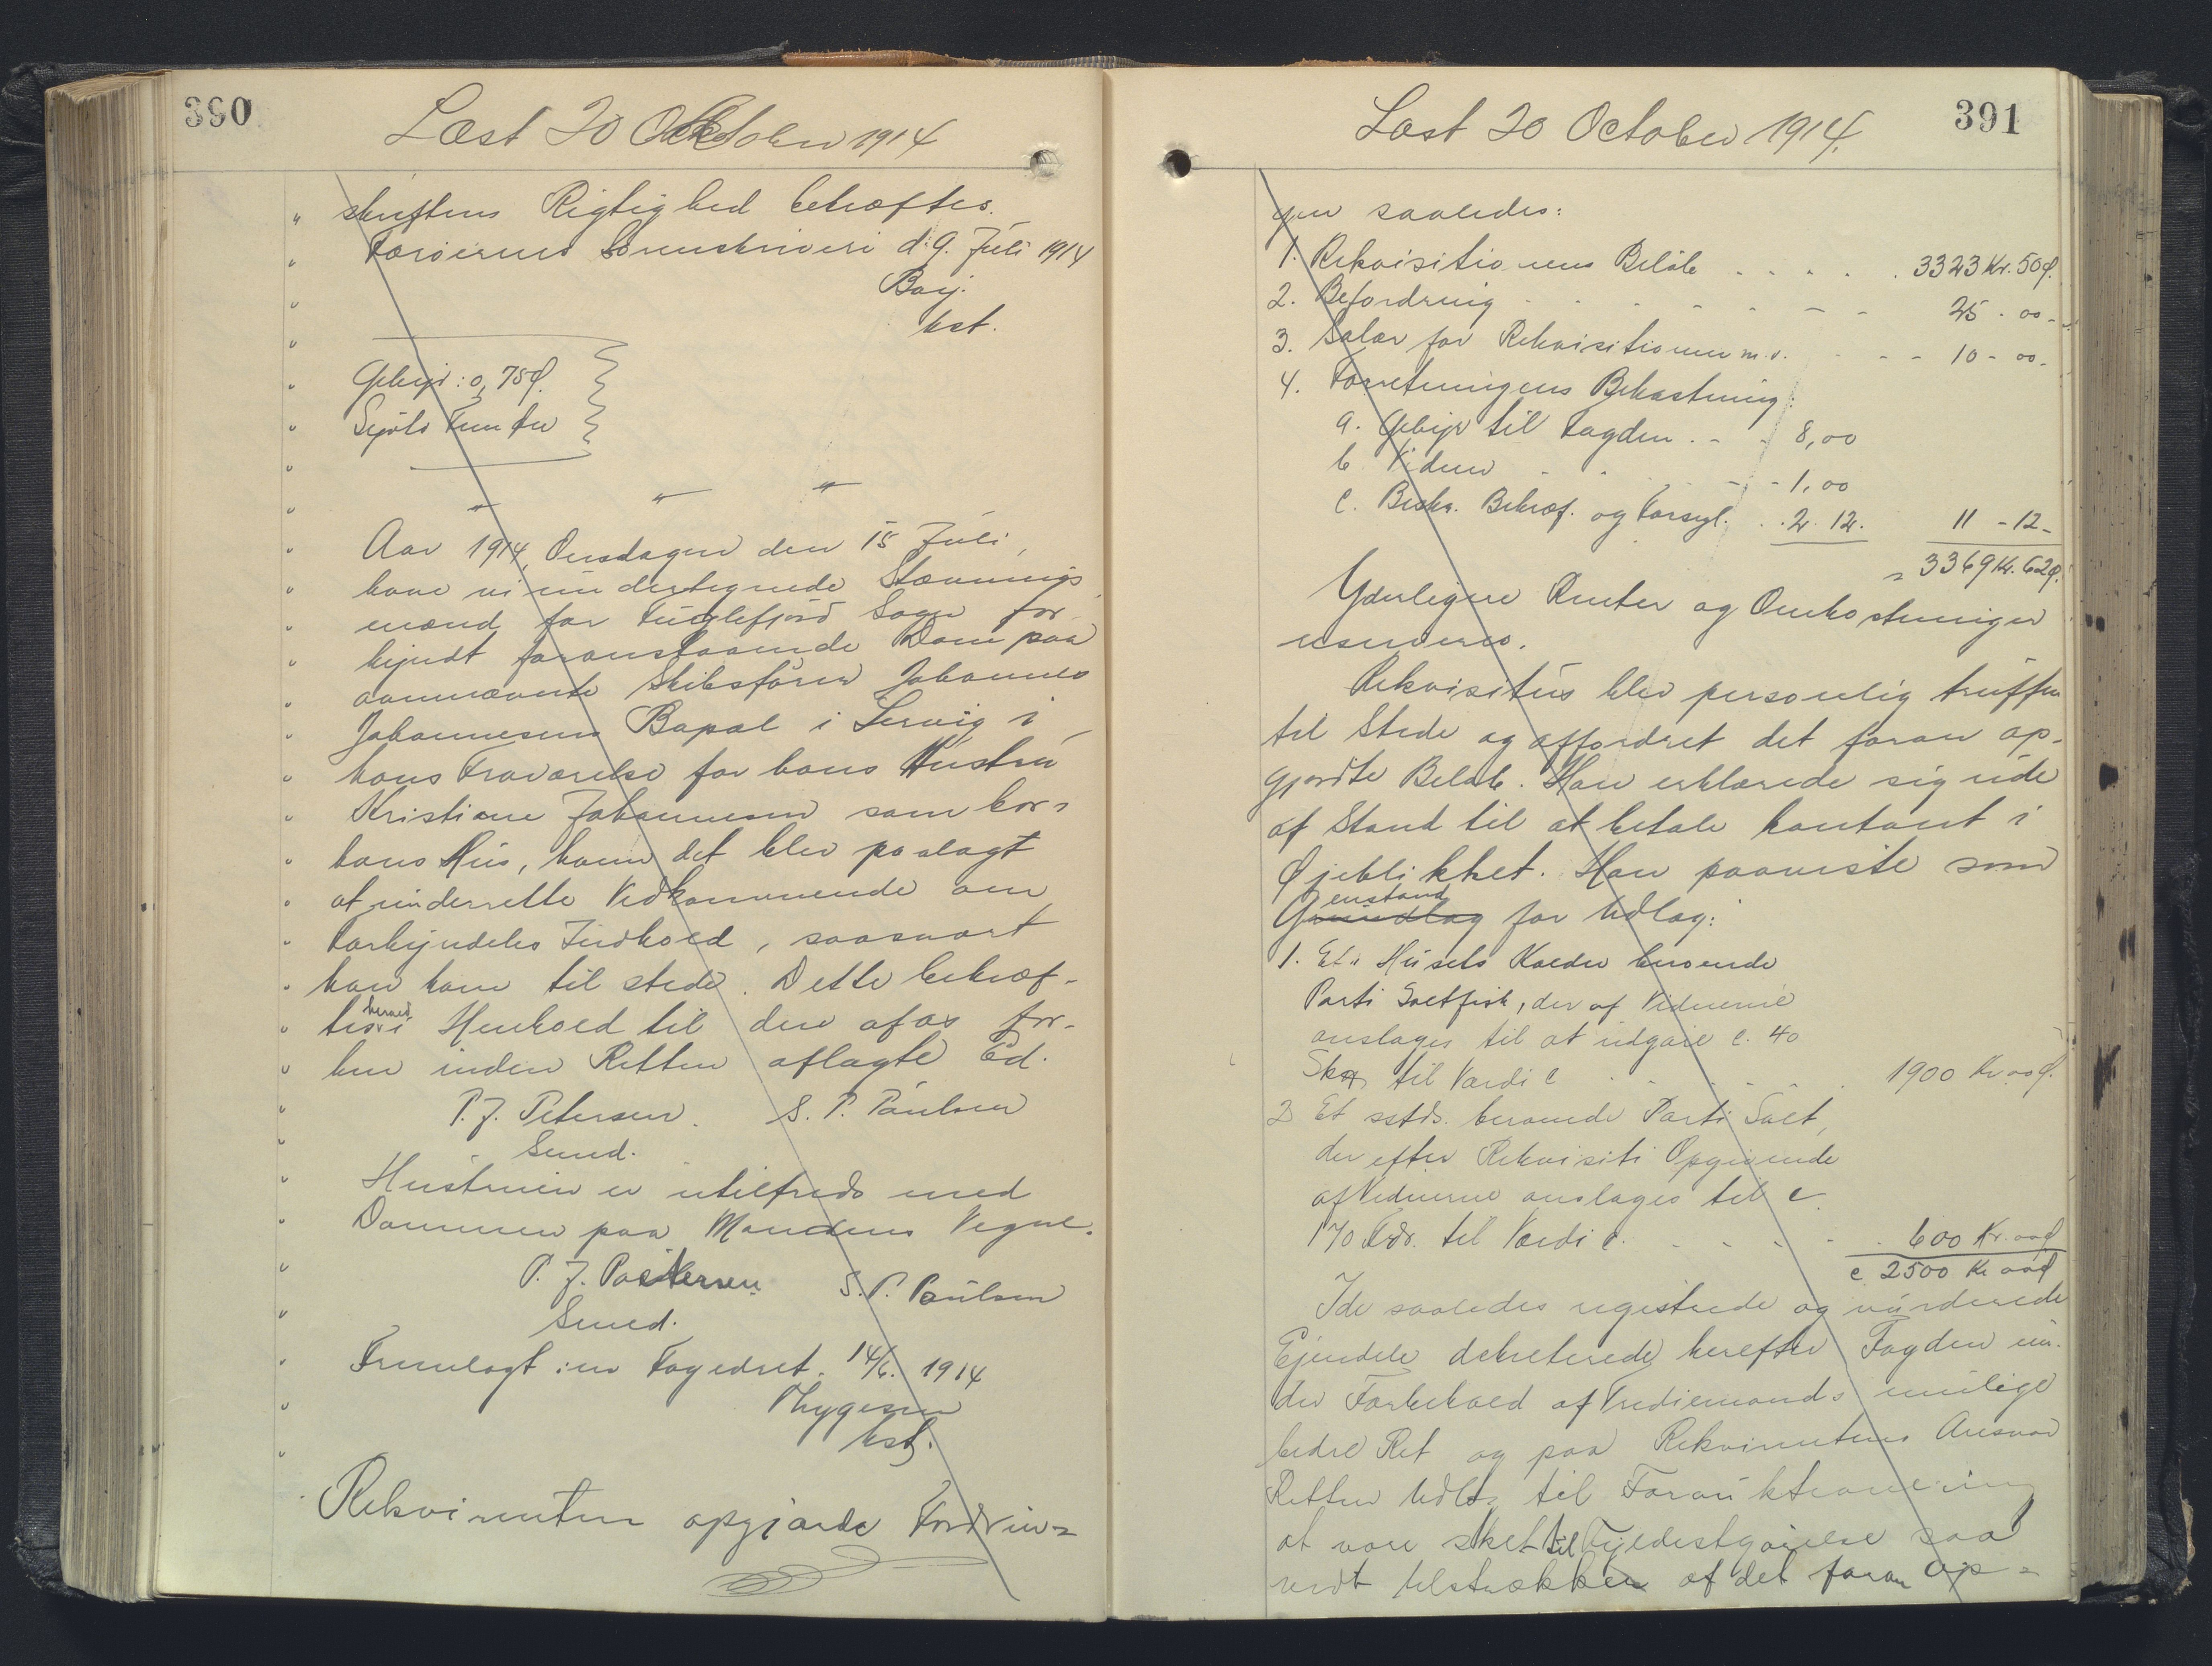 390
Læst 20 October 1914
" skriftens Rigtighed bekræftes.
" Færøernes Sorenskriveri d: 9. Juli 1914
" Bay.
" kst.
" Gebyr: 0,75 Ø.
" Syvti Fem Øre
" " "
" Aar 1914, Onsdagen den 15 Juli,
" have vi undertegnede Stævnings
" mænd for Fuglefjord Sogn for
" kyndt foranstaaende Dom paa
" ommævnte Skibsfører Johannes
" Johannesens Bopæl i Lervig i
" hans Fraværelse for hans Hustru
" Kristiane Johannesen som bor i
" hans Hus, hvem det blev paalagt
" at underrette Vedkommende om
" Forkyndelses Indhold, saasnart
" han kom til stede. Dette bekræf-
" tes herved i Henhold til den af os for-
" hen inden Retten aflagte Ed.
" P. J. Petersen. S. P. Poulsen
" Smed.
" Hustruen er utilfreds med
" Dommen paa Mandens Vegne.
" P. J. Petersen S. P. Poulsen
" Smed.
" Fremlagt i en Fogedret. 14/6. 1914
" Thygesen
" kst.
Rekvirenten opgjorde Fordrin-
391
Læst 20 October 1914.
gen saaledes:
1. Rekvisitionens Beløb . . . . . 3323 Kr. 50 Ø.
2. Befordring - - - - - - 25 - 00 -
3. Salær for Rekvisitionen m.v. - - - 10 - 00 -
4. Forretningens Bekostning:
a. Gebyr til Fogden . - - 8,00
b. Vidner - - - - - 1,00
c. Beskr. Bekræf. og Forsgl. . . 2. 12. 11 - 12 -
= 3369 Kr. 62 Ø.
Yderligere Renter og Omkostninger
reserveres.
Rekvisitus blev personlig truffen
til Stede og affordret det foran op-
gjordte Beløb. Han erklærede sig ude
af Stand til at betale kontant i
Øjeblikket. Han paaviste som
Genstand Grundlag for Udlæg:
1. Et i Husets Kælder beroende
Parti Saltfisk, der af Vidnerne
anslages til at udgøre c. 40
Skp til Værdi c . . . . . 1900 Kr. 00 Ø.
2 Et sstds. beroende Parti Salt,
der efter Rekvisiti Opgivende
af Vidnerne anslages til c.
170 Tdr. til Værdi c. - - - - - 600 Kr. 00 Ø
c 2500 Kr 00 Ø
I de saaledes registrede og vurderede
Ejendele dekreterede herefter Fogden un-
der Forbehold af Trediemands mulige
bedre Ret og paa Rekvirentens Ansvar
Retten Udlæg til Forauktionering
at være sket til Fyldestgørelse saa
vidt tilstrækker af det foran op-